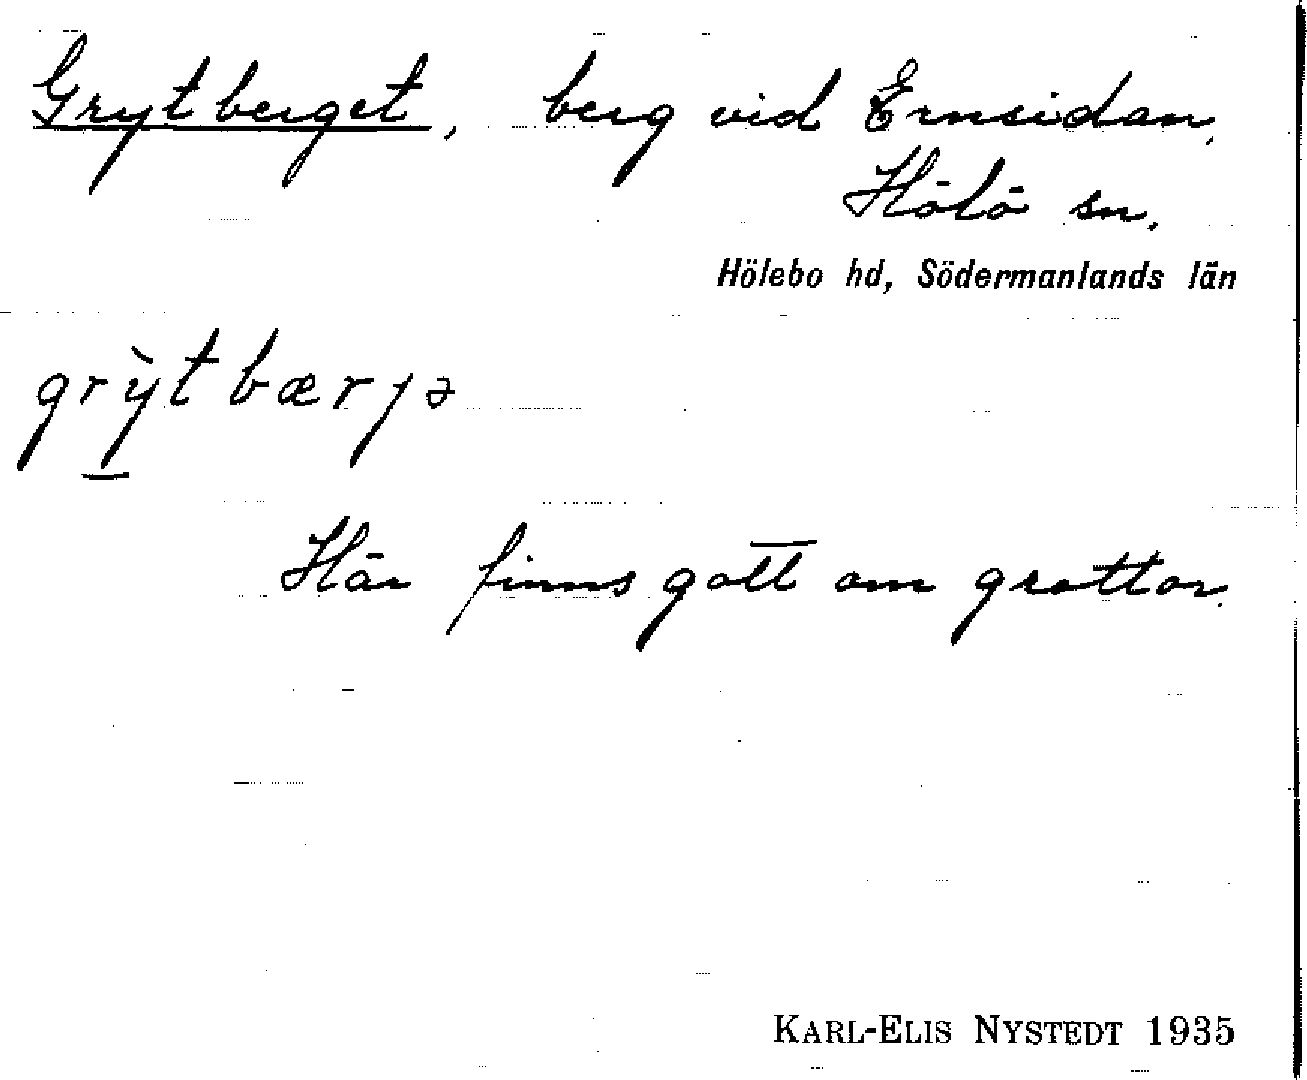 Grytberget, berg vid Ernsidan,
Hölö sn.
Hölebo hd, Södermanlands län
grỳtbærjə
Här finns gott om grottor.
KARL-ELIS NYSTEDT 1935